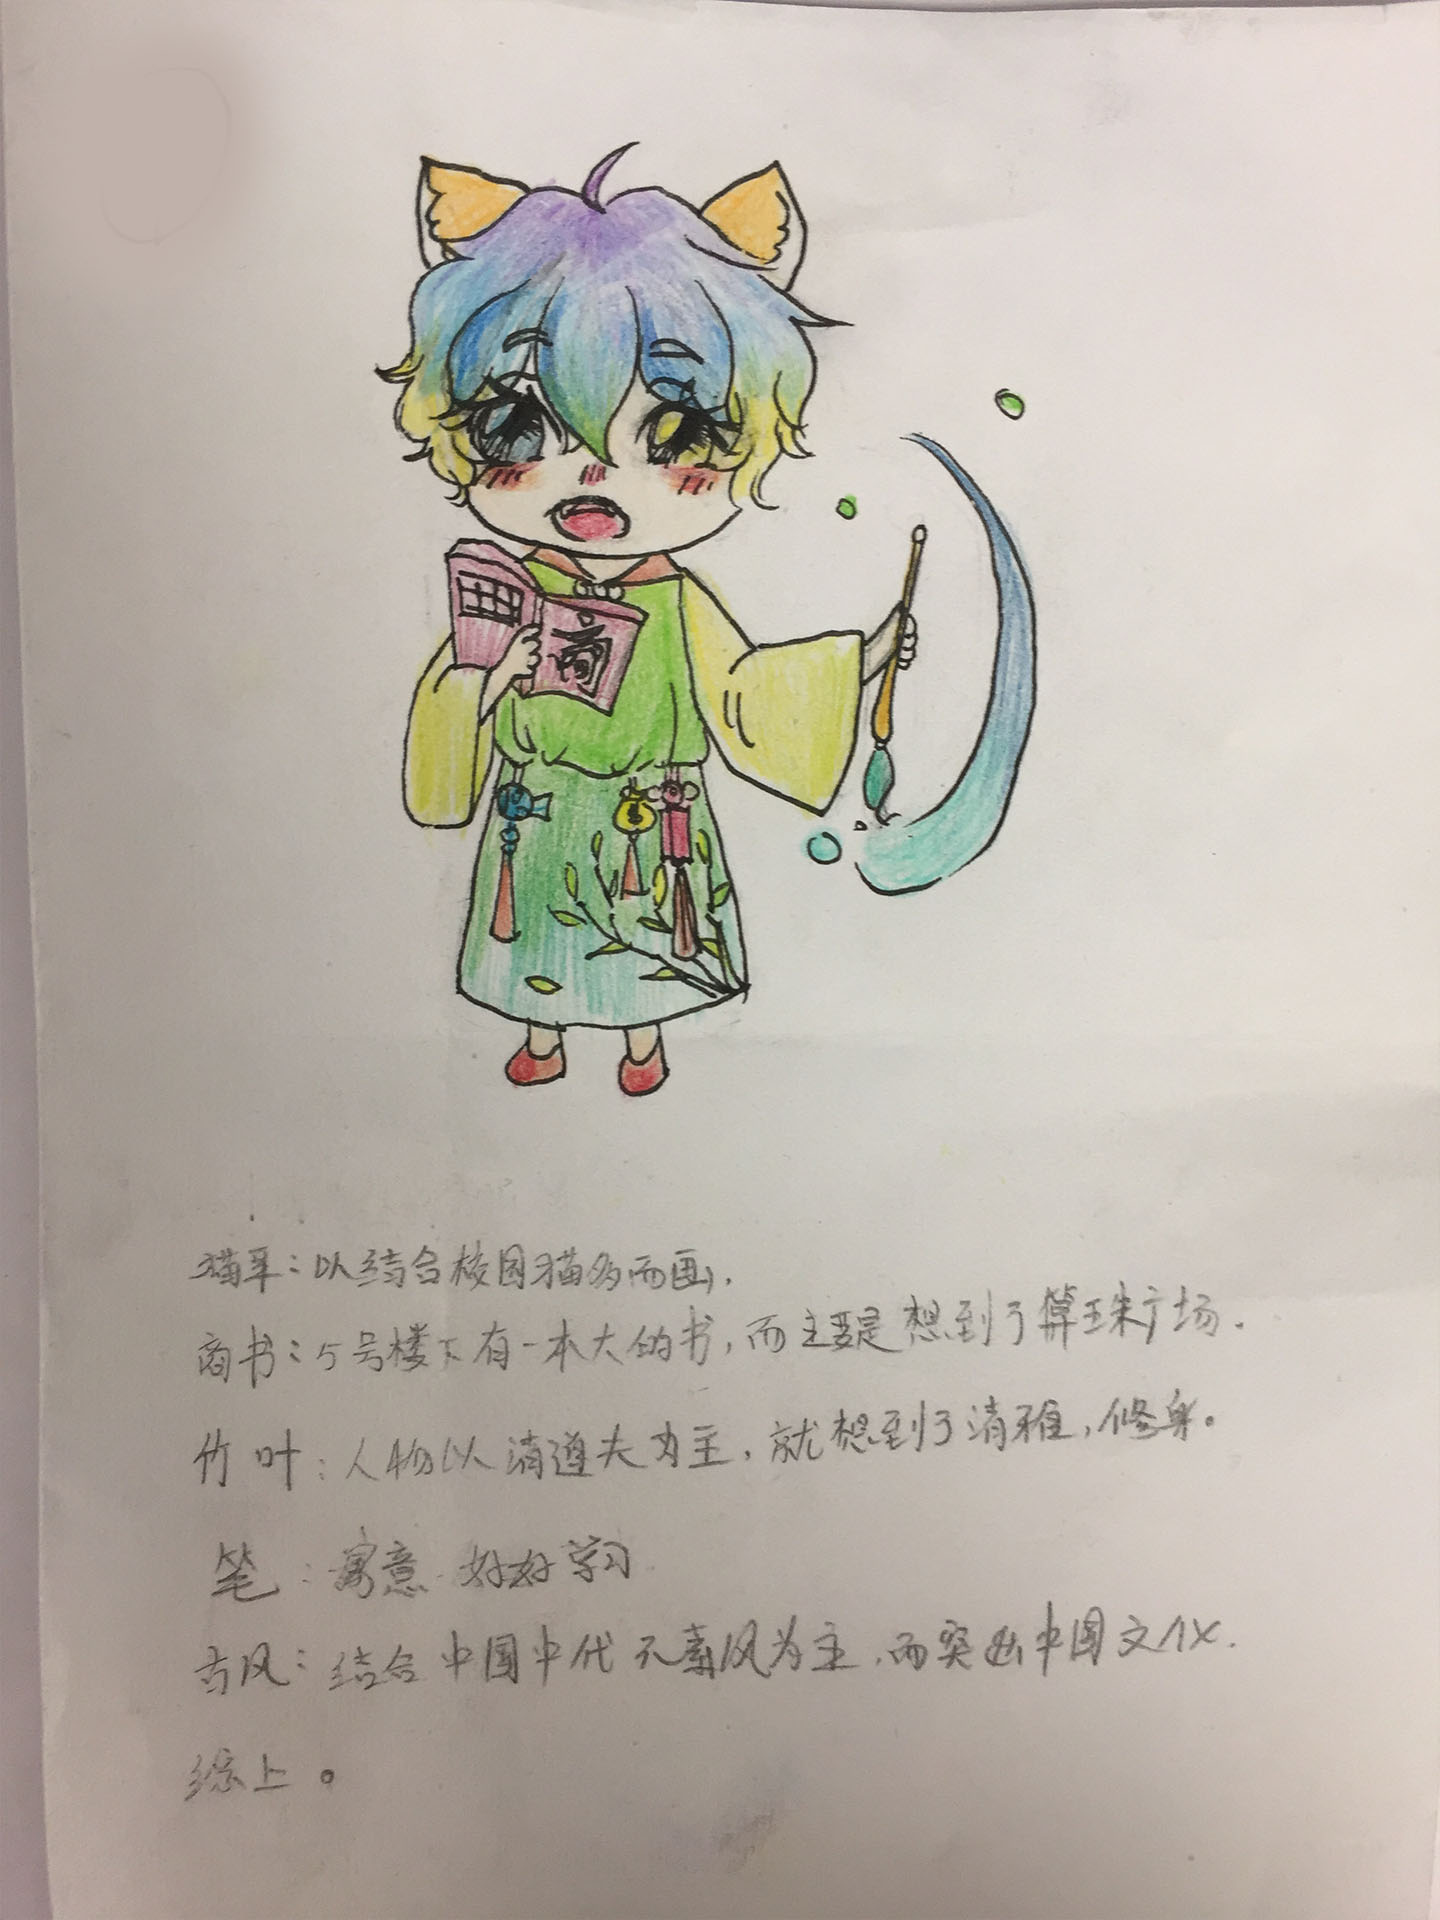 商
猫耳：以结合校园猫多而画，
商书：5号楼下有一本大的书，而主要是想到了算珠广场．
竹叶：人物以清道夫为主，就想到了清雅，修身。
笔：寓意 好好学习
古风：结合中国中代元素风为主，而突出中国文化．
综上。